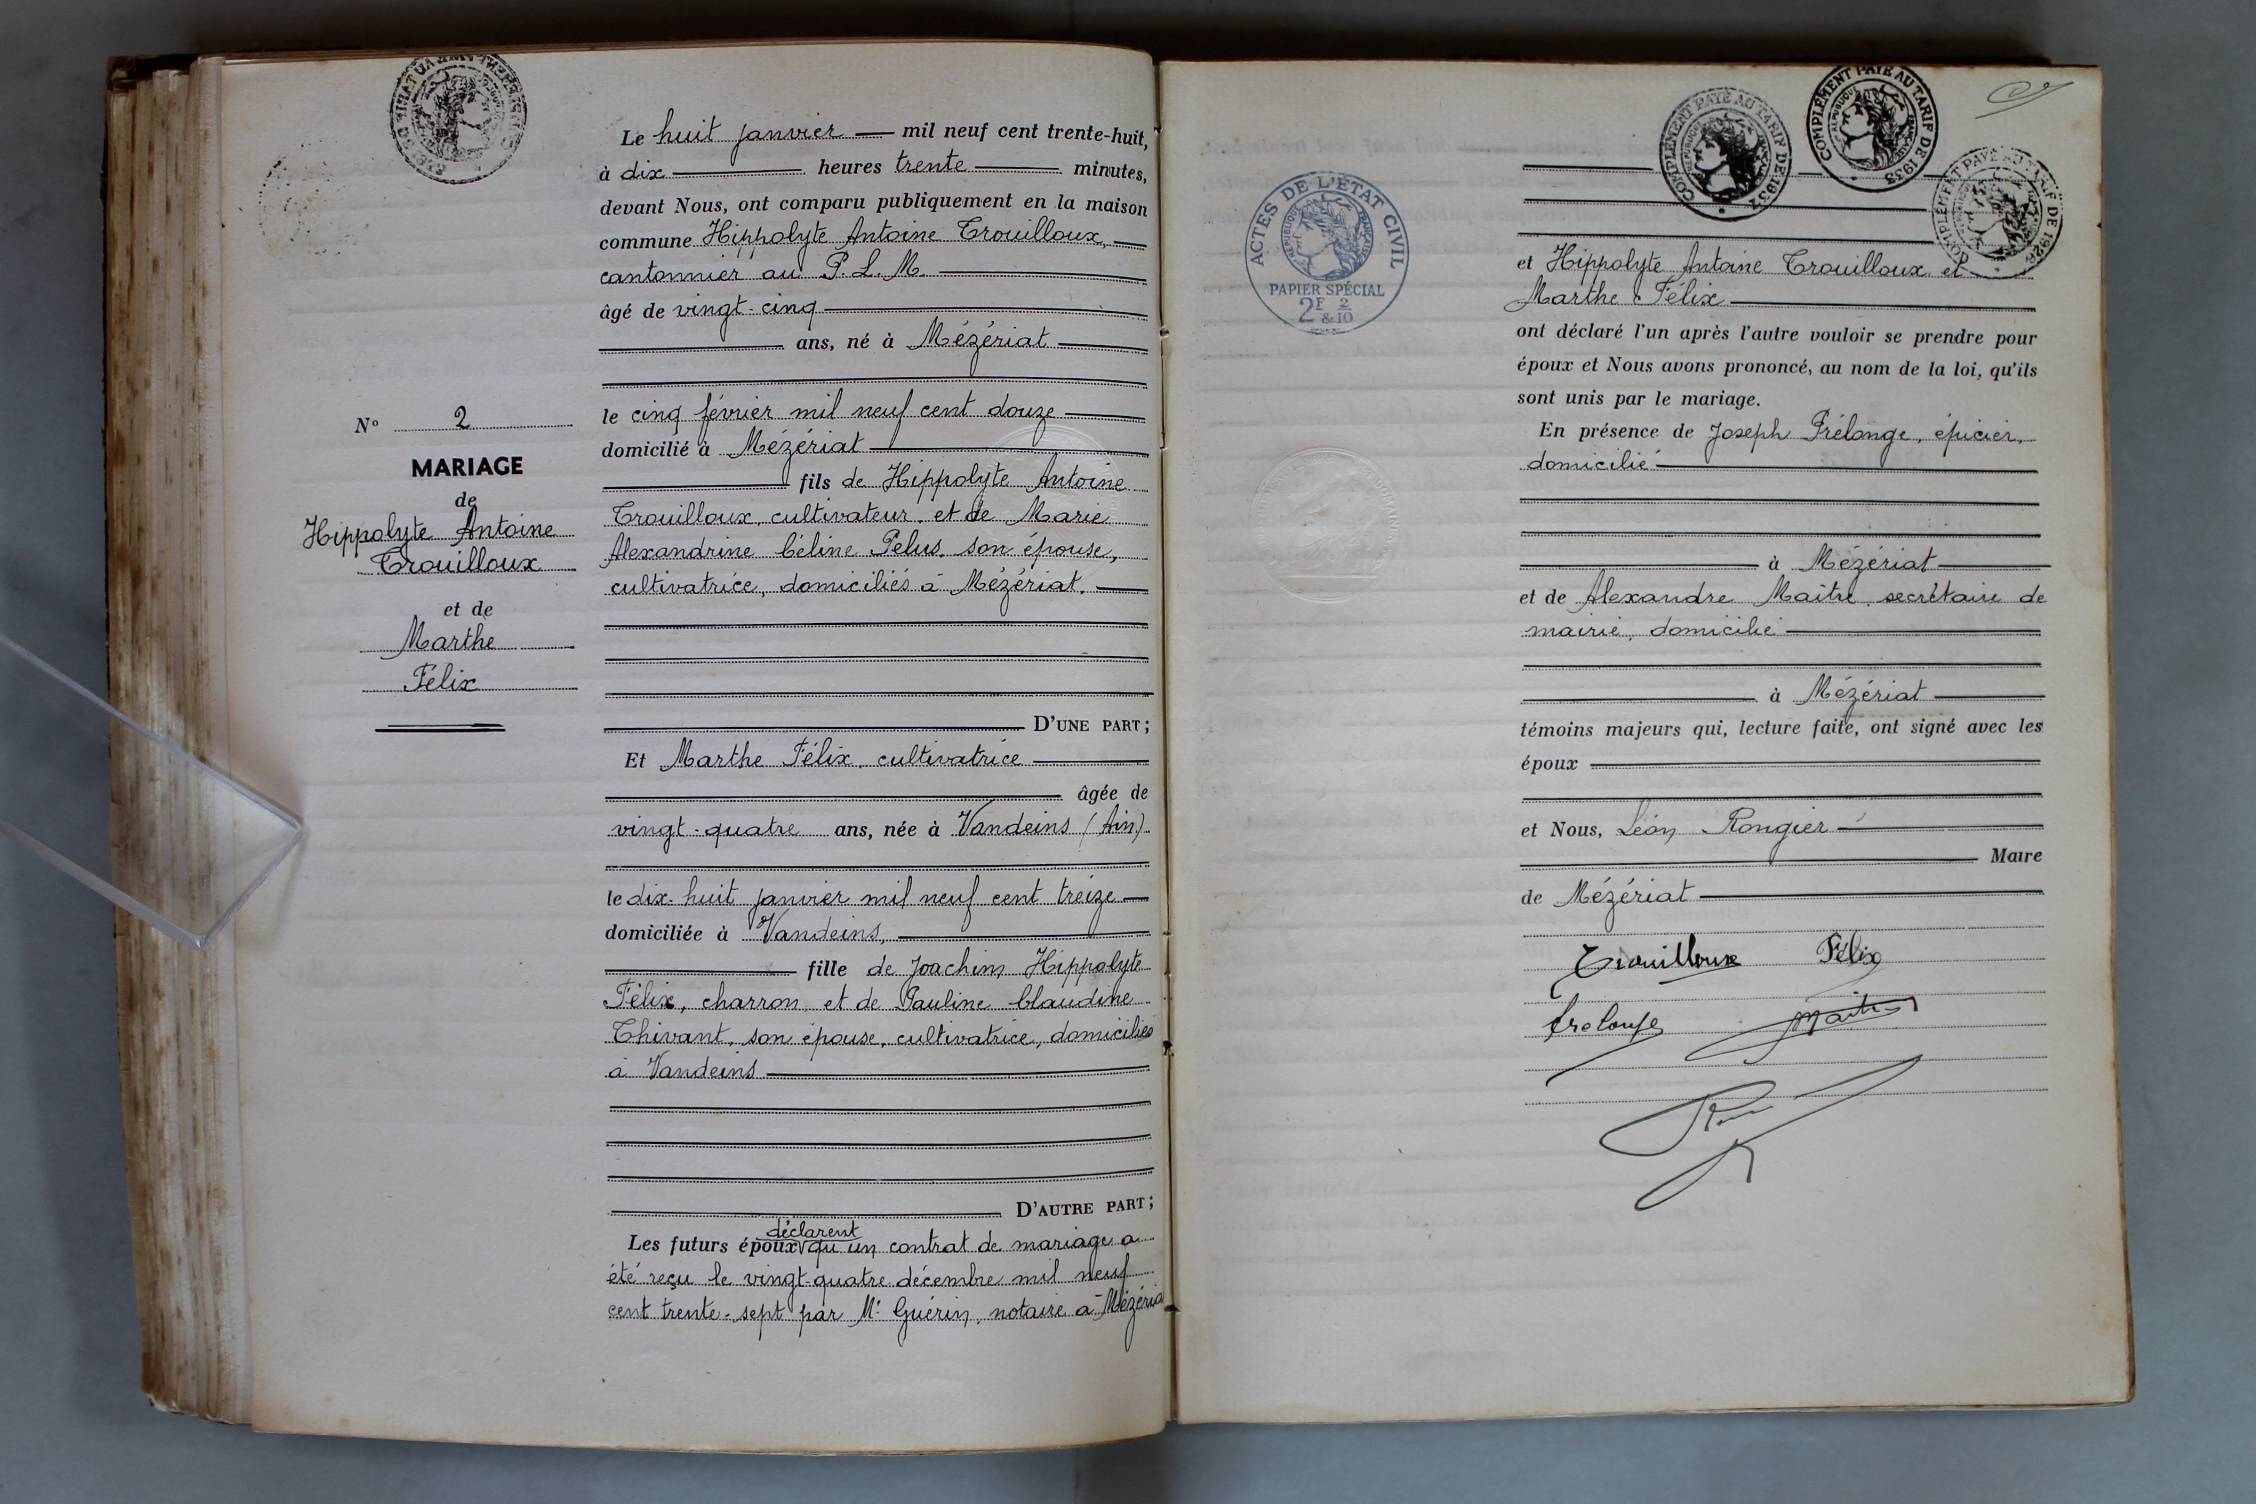 Le huit janvier mil neuf cent trente-huit,
à dix heures trente minutes,
devant Nous, ont comparu publiquement en la maison
commune Hippolyte Antoine Trouilloux,
cantonnier au P. L. M.
âgé de vingt-cinq
ans, né à Mézériat
le cinq février mil neuf cent douze
domicilié à Mézériat
fils de Hippolyte Antoine
Trouilloux, cultivateur, et de Marie
Alexandrine Céline Pelus, son épouse,
cultivatrice, domiciliés à Mézériat.
D'UNE PART;
Et Marthe Félix, cultivatrice
âgée de
vingt-quatre ans, née à Vandeins (Ain)
le dix-huit janvier mil neuf cent treize
domiciliée à Vandeins,
fille de Joachim Hippolyte
Félix, charron, et de Pauline Claudine
Thivant, son épouse, cultivatrice, domiciliés
à Vandeins
D'AUTRE PART;
déclarent
Les futurs époux qu'un contrat de mariage a
été reçu le vingt-quatre décembre mil neuf
cent trente-sept par Me Guérin, notaire à Mézéria
N° 2
MARIAGE
de
Hippolyte Antoine
Trouilloux
et de
Marthe
Félix
COMPLÉMENT PAYÉ AU TARIF DE 1937
RÉPUBLIQUE FRANÇAISE
COMPLÉMENT PAYÉ AU TARIF DE 1933
RÉPUBLIQUE FRANÇAISE
ACTES DE L'ÉTAT CIVIL
RÉPUBLIQUE FRANÇAISE
PAPIER SPÉCIAL
2F & 2/10
et Hippolyte Antoine Trouilloux et
Marthe Félix
ont déclaré l'un après l'autre vouloir se prendre pour
époux et Nous avons prononcé, au nom de la loi, qu'ils
sont unis par le mariage.
En présence de Joseph Prélonge, épicier,
domicilié
à Mézériat
et de Alexandre Maître, secrétaire de
mairie, domicilié
à Mézériat
témoins majeurs qui, lecture faite, ont signé avec les
époux
et Nous, Léon Rongier
Maire
de Mézériat
Trouilloux Félix
Prelonge Maitre